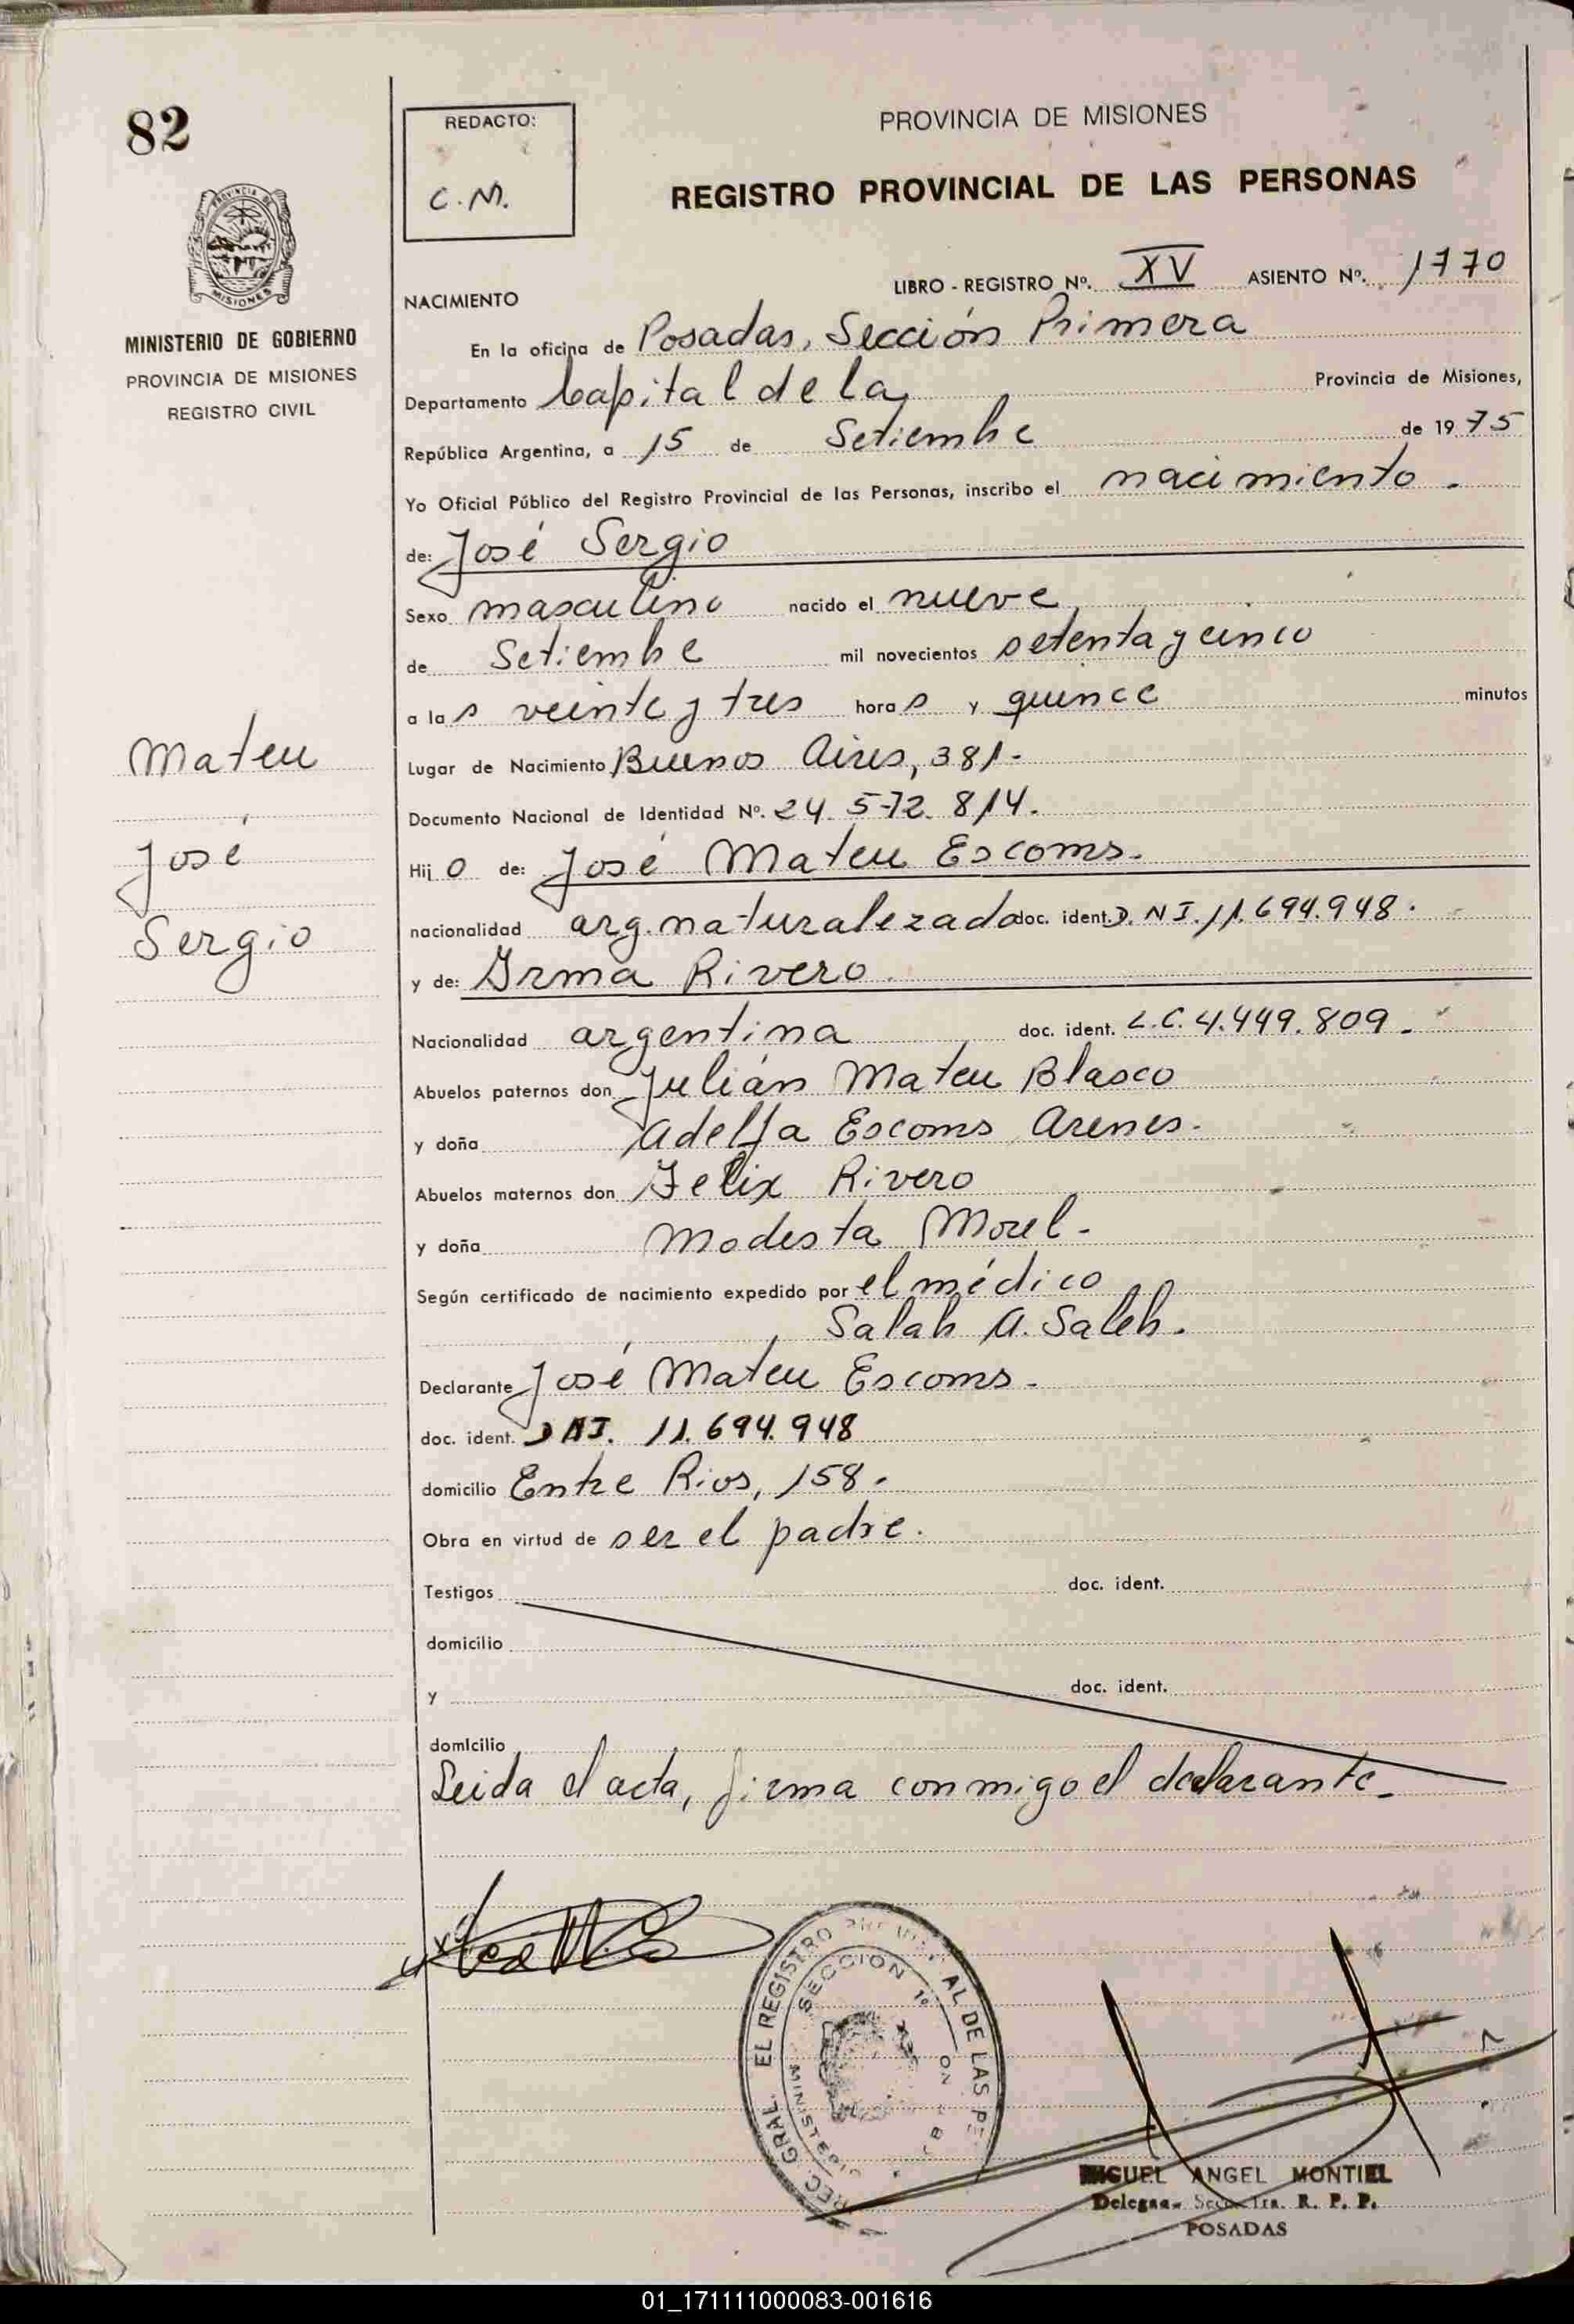 82
REDACTO:
C.M.
PROVINCIA DE MISIONES
REGISTRO PROVINCIAL DE LAS PERSONAS
PROVINCIA DE
MISIONES
MINISTERIO DE GOBIERNO
PROVINCIA DE MISIONES
REGISTRO CIVIL
LIBRO - REGISTRO Nº. XV ASIENTO Nº. 1770
NACIMIENTO
En la oficina de Posadas, Sección Primera
Departamento Capital de la Provincia de Misiones,
República Argentina, a 15 de Setiembre de 1975
Yo Oficial Público del Registro Provincial de las Personas, inscribo el nacimiento.
de: José Sergio
Sexo masculino nacido el nueve
de Setiembre mil novecientos setenta y cinco
a las veinte y tres horas y quince minutos
Mateu
José
Sergio
Lugar de Nacimiento Buenos Aires, 381-
Documento Nacional de Identidad Nº. 24.572.814.
Hijo de: José Mateu Escoms.
nacionalidad arg. naturalizado doc. ident. D.N.I. 11.694.948.
y de: Irma Rivero.
Nacionalidad argentina doc. ident. L.C. 4.449.809.
Abuelos paternos don Julián Mateu Blasco
y doña Adelfa Escoms Arenes.
Abuelos maternos don Felix Rivero
y doña Modesta Morel-
Según certificado de nacimiento expedido por el médico
Salah A. Saleh.
Declarante José Mateu Escoms.
doc. ident. DNI. 11.694.948
domicilio Entre Rios, 158.
Obra en virtud de ser el padre.
Testigos doc. ident.
domicilio
y doc. ident.
domicilio
Leida el acta, firma conmigo el declarante.
EL REGISTRO AL DE LAS PE
SECCION 1º
MINISTERIO
GRAL.
MIGUEL ANGEL MONTIEL
R. P. P.
POSADAS
01_171111000083-001616